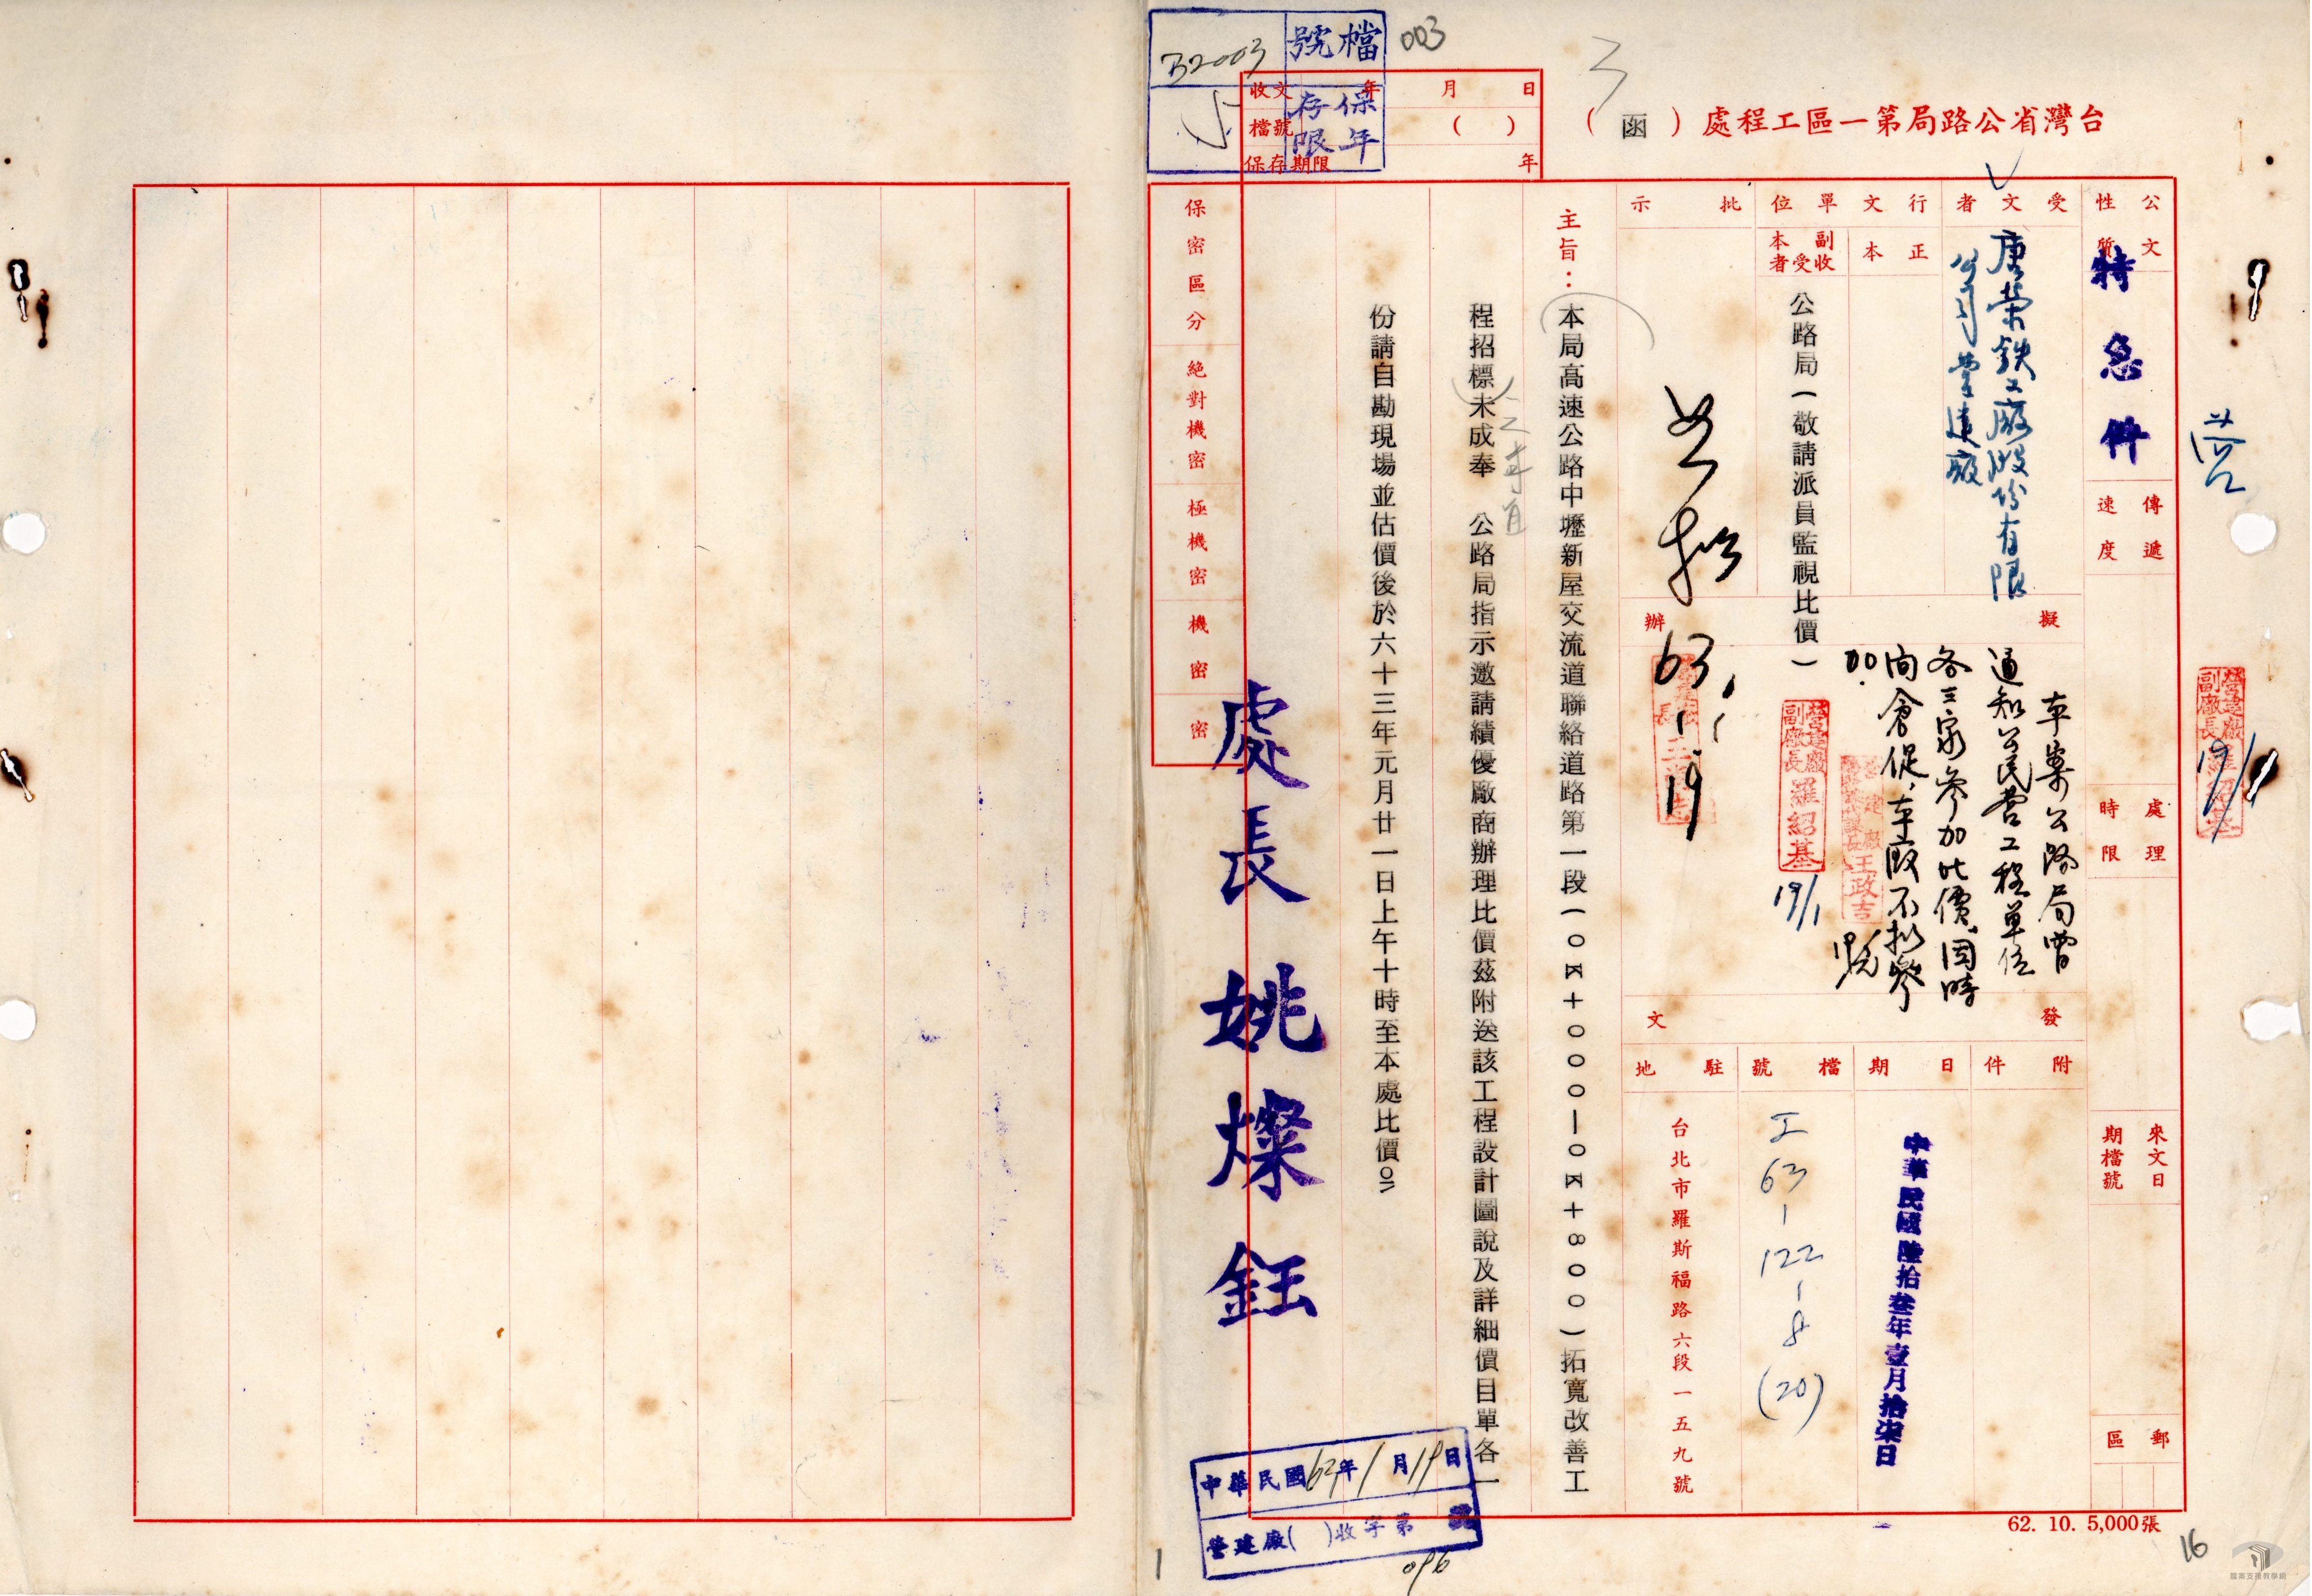 檔號
B2003
003
保存年限
5
收文 年 月 日
檔號 ( )
保存期限 年
台灣省公路局第一區工程處(函)
公文性質
特急件
傳遞速度
處理時限
來文日期檔號
郵區
受文者
唐榮鉄工廠股份有限
公司營建廠
行文單位
正本
副本收受者
公路局(敬請派員監視比價)
批示
如擬
63.1.19
擬辦
本案公路局曾
通知公民營工程單位
各三家參加比價,因時
間倉促,本廠不擬參
加.
營建廠副廠長羅紹基
19/1
王政吉
營建廠副廠長羅紹基
19/1
發文
附件
日期
中華民國陸拾叁年壹月拾柒日
檔號
工63-122-8(20)
駐地
台北市羅斯福路六段一五九號
主旨:
本局高速公路中壢新屋交流道聯絡道路第一段(0K+000—0K+800)拓寬改善工
程招標未成奉 公路局指示邀請績優廠商辦理比價茲附送該工程設計圖說及詳細價目單各一
份請自勘現場並估價後於六十三年元月廿一日上午十時至本處比價。
處長姚燦鈺
保密區分
絕對機密
極機密
機密
密
中華民國63年1月19日
營建廠( )收字第 號
096
1
62. 10. 5,000張
16
檔案支援教學網